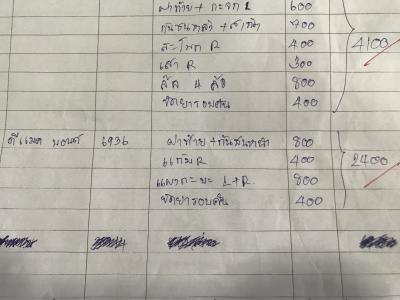 ฝาท้าย + กระจก L 600
กันชนหลัง + สเกิร์ต 400
สะโพก R 400
เสา R 300
ล้อ 4 ล้อ 800
ขัดยารอบคัน 400
4100
ดีแมค บอนด์ 6936 ฝาท้าย + กันชนหลัง 800
แก้ม R 400
แผงกะบะ L+R 800
ขัดยารอบคัน 400
2400